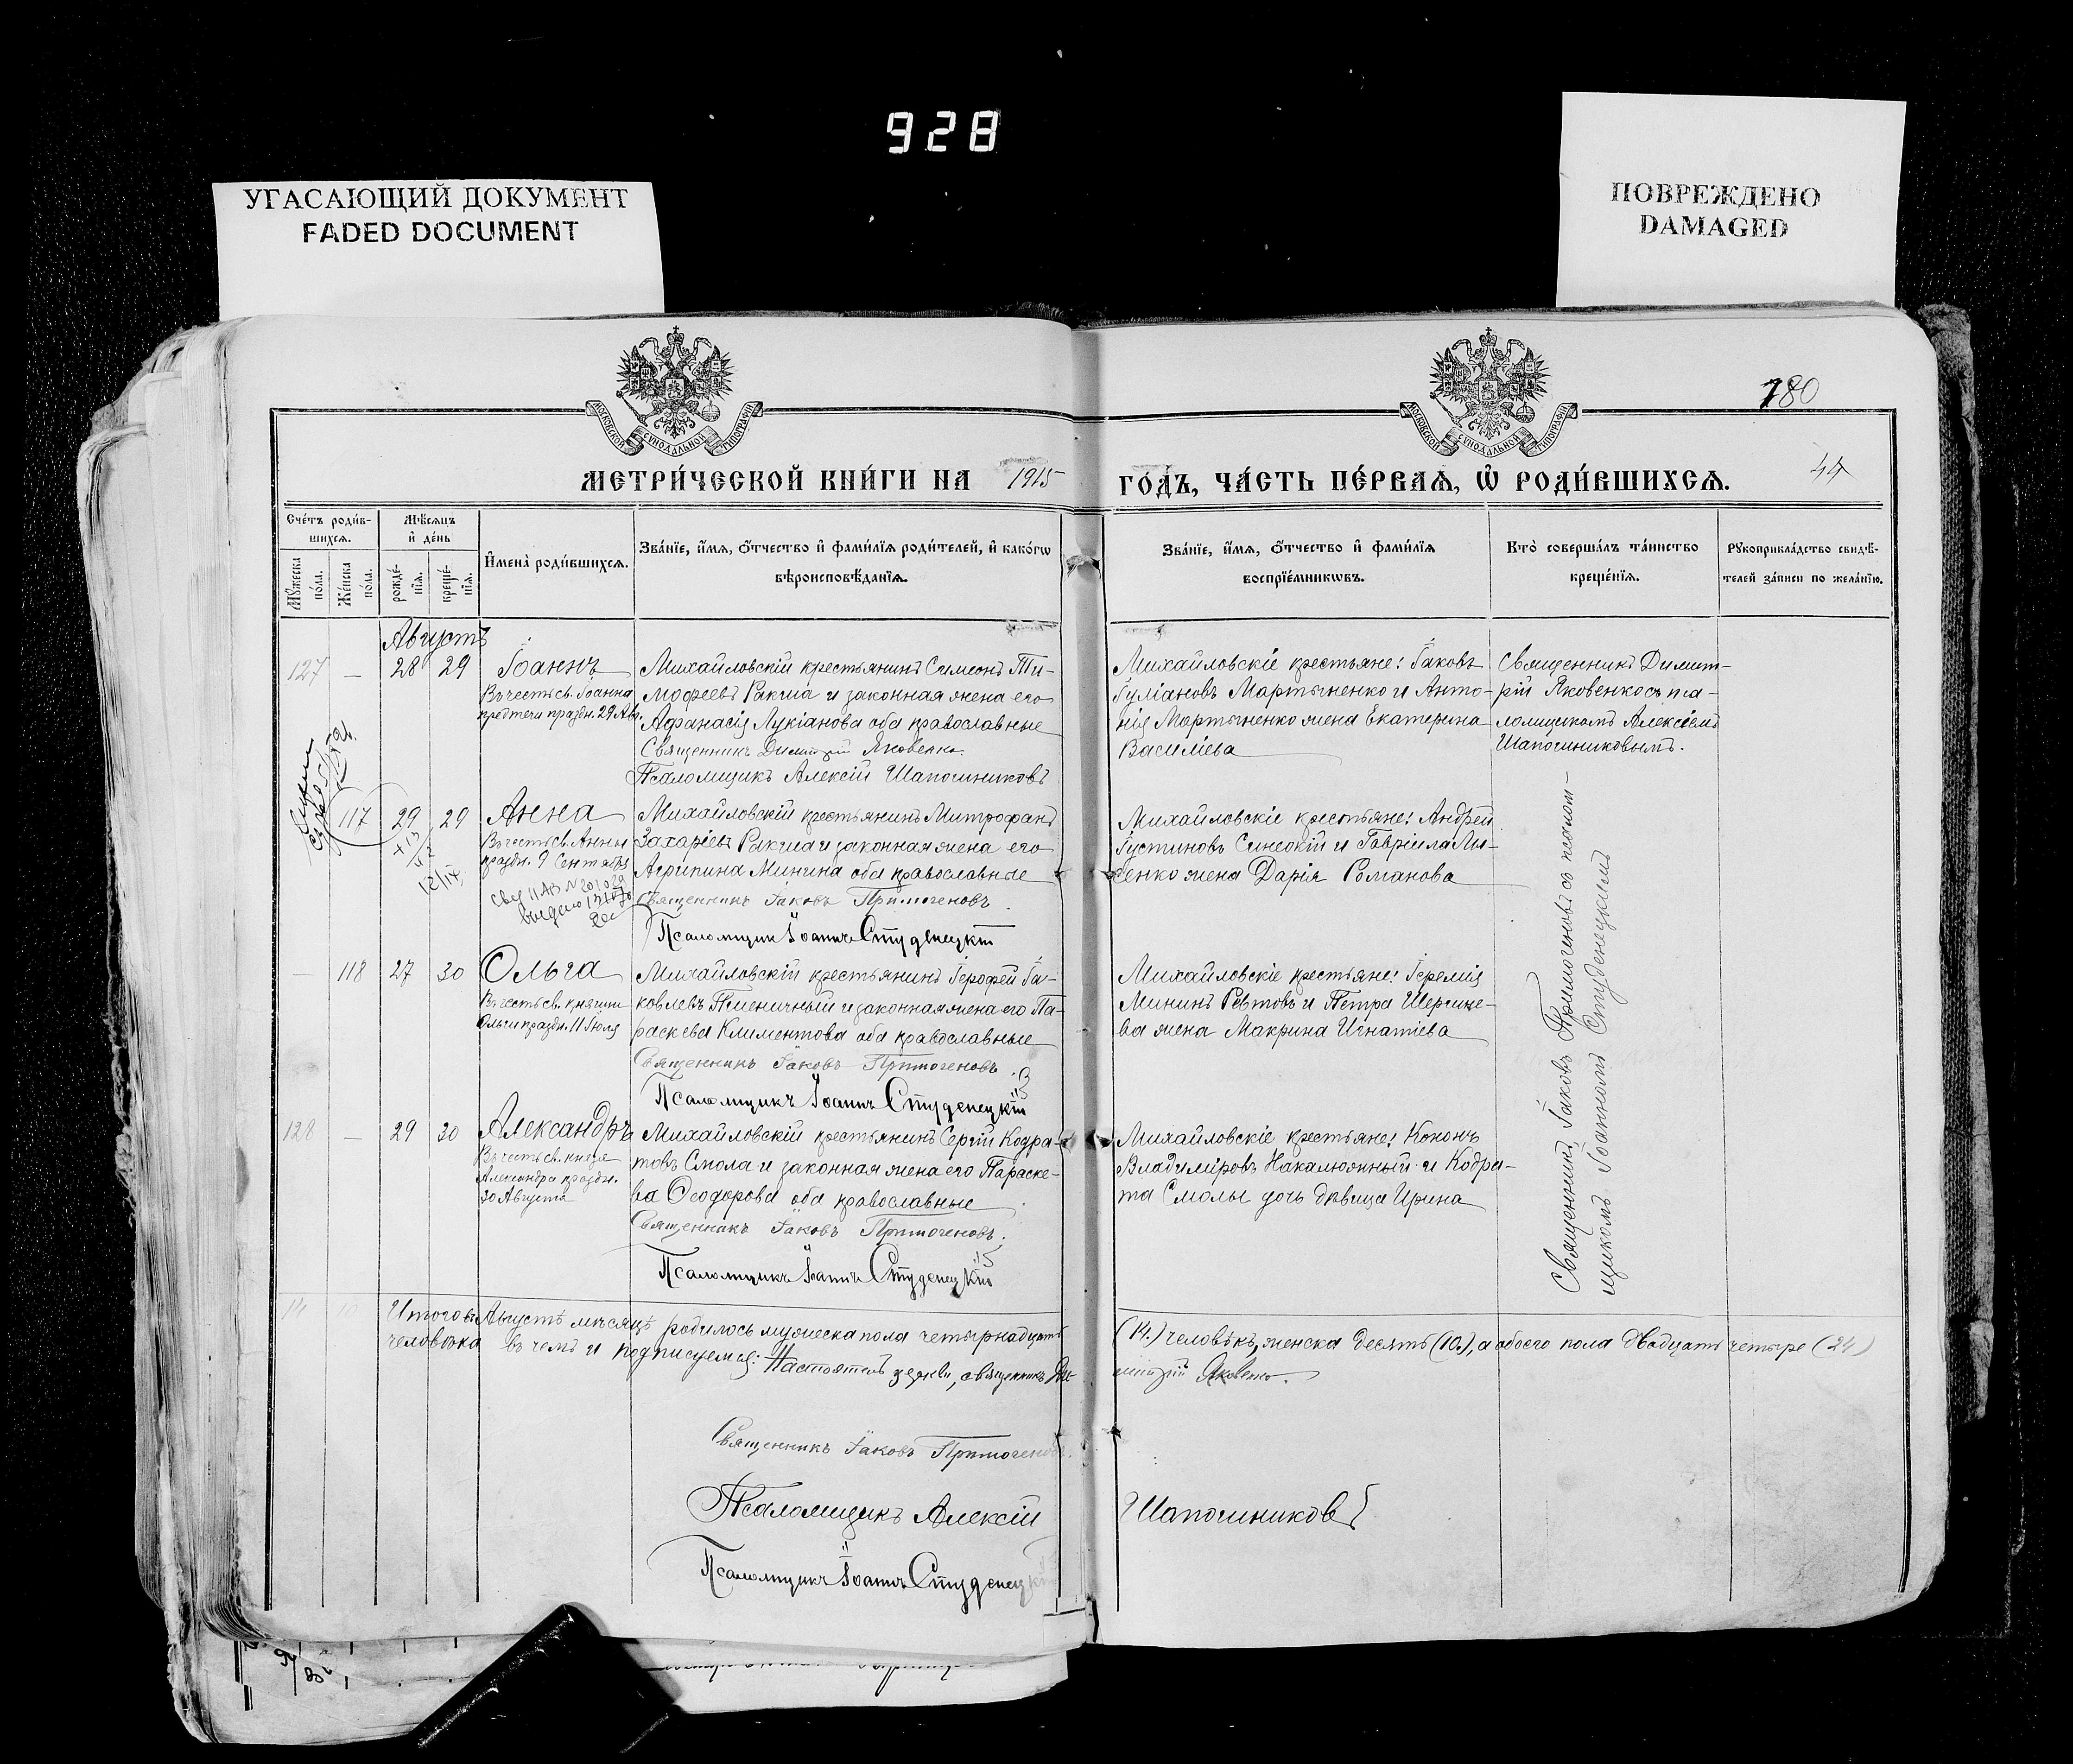 928
УГАСАЮЩИЙ ДОКУМЕНТ
FADED DOCUMENT
ПОВРЕЖДЕНО
DAMAGED
МОСКОВСКОЙ СѴНОДАЛЬНОЙ ТИПОГРАФІИ
МОСКОВСКОЙ СѴНОДАЛЬНОЙ ТИПОГРАФІИ
180
МЕТРИ́ЧЕСКОЙ КНИ́ГИ НА 1915 ГО́ДЪ, ЧА́СТЬ ПЕ́РВАѦ, Ѡ҆ РОДИ́ВШИХСѦ.
44
Сче́тъ роди́в-
шихсѧ.
Мѣ́сѧцъ
и҆ де́нь
Мꙋ́жеска по́ла.
Же́нска по́ла.
рожде́-
нїѧ.
креще́-
нїѧ.
И҆мена̀ роди́вшихсѧ.
Зва́нїе, и҆́мѧ, ѻ҆́тчество и҆ фами́лїѧ роди́телей, и҆ како́гѡ
вѣроисповѣ́данїѧ.
Зва́нїе, и҆́мѧ, ѻ҆́тчество и҆ фами́лїѧ
воспрїе́мникѡвъ.
Кто̀ соверша́лъ та́инство
креще́нїѧ.
Рꙋкоприкла́дство свидѣ́-
телей за́писи по жела́нїю.
Августъ
127 — 28 29 Іоаннъ
Въ честь св. Іоанна
предтечи праздн. 29 Авг.
Михайловскій крестьянинъ Симеонъ Ти-
мофеевъ Ракша и законная жена его
Афанасія Лукіанова оба православные
Священникъ Димитрій Яковенко
Псаломщикъ Алексій Шапошниковъ
Михайловскіе крестьяне: Іаковъ
Іуліановъ Мартыненко и Анто-
нія Мартыненко жена Екатерина
Василіева
Священникъ Димит-
рій Яковенко съ пса-
ломщикомъ Алексіемъ
Шапошниковымъ.
117 29 29 Анна
Въ честь св. Анны
праздн. 9 Сентября
Михайловскій крестьянинъ Митрофанъ
Захаріевъ Ракша и законная жена его
Агрипина Минина оба православные
Священникъ Іаковъ Примогеновъ
Псаломщикъ Іоаннъ Студенецкій
Михайловскіе крестьяне: Андрей
Іустиновъ Синеокій и Гавріила Лы-
сенко жена Дарія Романова
Священникъ Іаковъ Примогеновъ съ псалом-
щикомъ Іоанномъ Студенецкимъ
— 118 27 30 Ольга
Въ честь св. княгини
Ольги праздн. 11 Іюля
Михайловскій крестьянинъ Іерофей Іа-
ковлевъ Пшеничный и законная жена его Па-
раскева Климентова оба православные
Священникъ Іаковъ Примогеновъ
Псаломщикъ Іоаннъ Студенецкій
Михайловскіе крестьяне: Іеремія
Мининъ Ревтовъ и Петра Шерстне-
ва жена Макрина Игнатіева
128 — 29 30 Александръ
Въ честь св. князя
Александра праздн.
30 Августа
Михайловскій крестьянинъ Сергій Кодра-
товъ Смола и законная жена его Параске-
ва Ѳеодорова оба православные
Священникъ Іаковъ Примогеновъ.
Псаломщикъ Іоаннъ Студенецкій
Михайловскіе крестьяне: Кононъ
Владиміровъ Накалюжный и Кодра-
та Смолы дочь дѣвица Ирина
14 10 Итого въ Августѣ мѣсяцѣ родилось мужеска пола четырнадцать (14.) человѣкъ, женска десять (10.), а обоего пола двадцать четыре (24)
человѣка въ чемъ и подписуемся: Настоятель церкви, священникъ Димитрій Яковенко.
Священникъ Іаковъ Примогеновъ.
Псаломщикъ Алексій Шапошниковъ
Псаломщикъ Іоаннъ Студенецкій